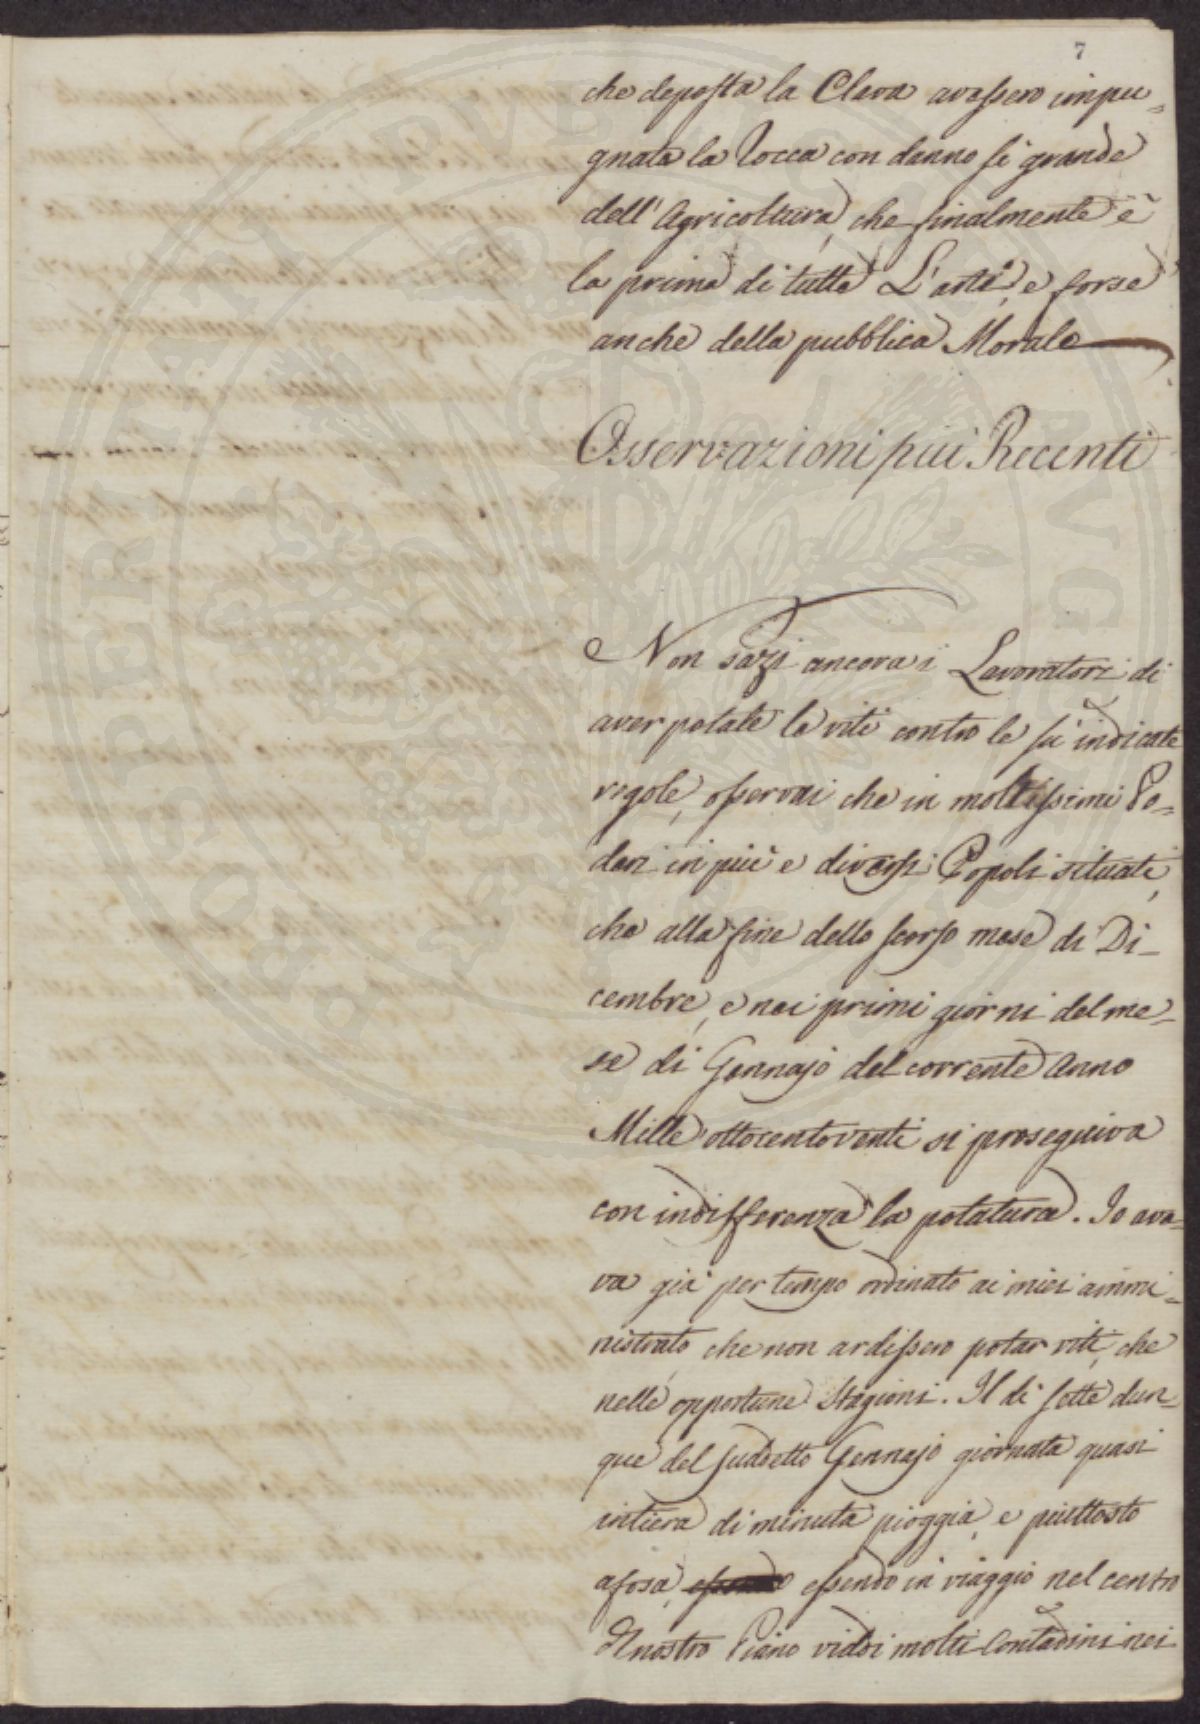 7
che deposta la Clava avessero impu=
gnata la Rocca con danno sì grande
dell'Agricoltura, che finalmente è
la prima di tutte L'arti, e forse
anche della pubblica Morale
Osservazioni più Recenti
Non sazi ancora i Lavoratori di
aver potate le viti contro le su indicate
regole, osservai che in moltissimi Po=
deri in più e diversi Popoli situati,
che alla fine dello scorso mese di Di=
cembre, e nei primi giorni del me=
se di Gennajo del corrente Anno
Mille ottocentoventi si proseguiva
con indifferenza la potatura. Io ave=
va già per tempo ordinato ai miei ammi=
nistrati che non ardissero potar viti, che
nelle opportune Stagioni. Il dì sette dun=
que del suddetto Gennajo giornata quasi
intiera di minuta pioggia, e piuttosto
afosa, essendo essendo in viaggio nel centro
del nostro Piano viddi molti Contadini nei
PROSPERITATI PUBLICAE AUGENDAE